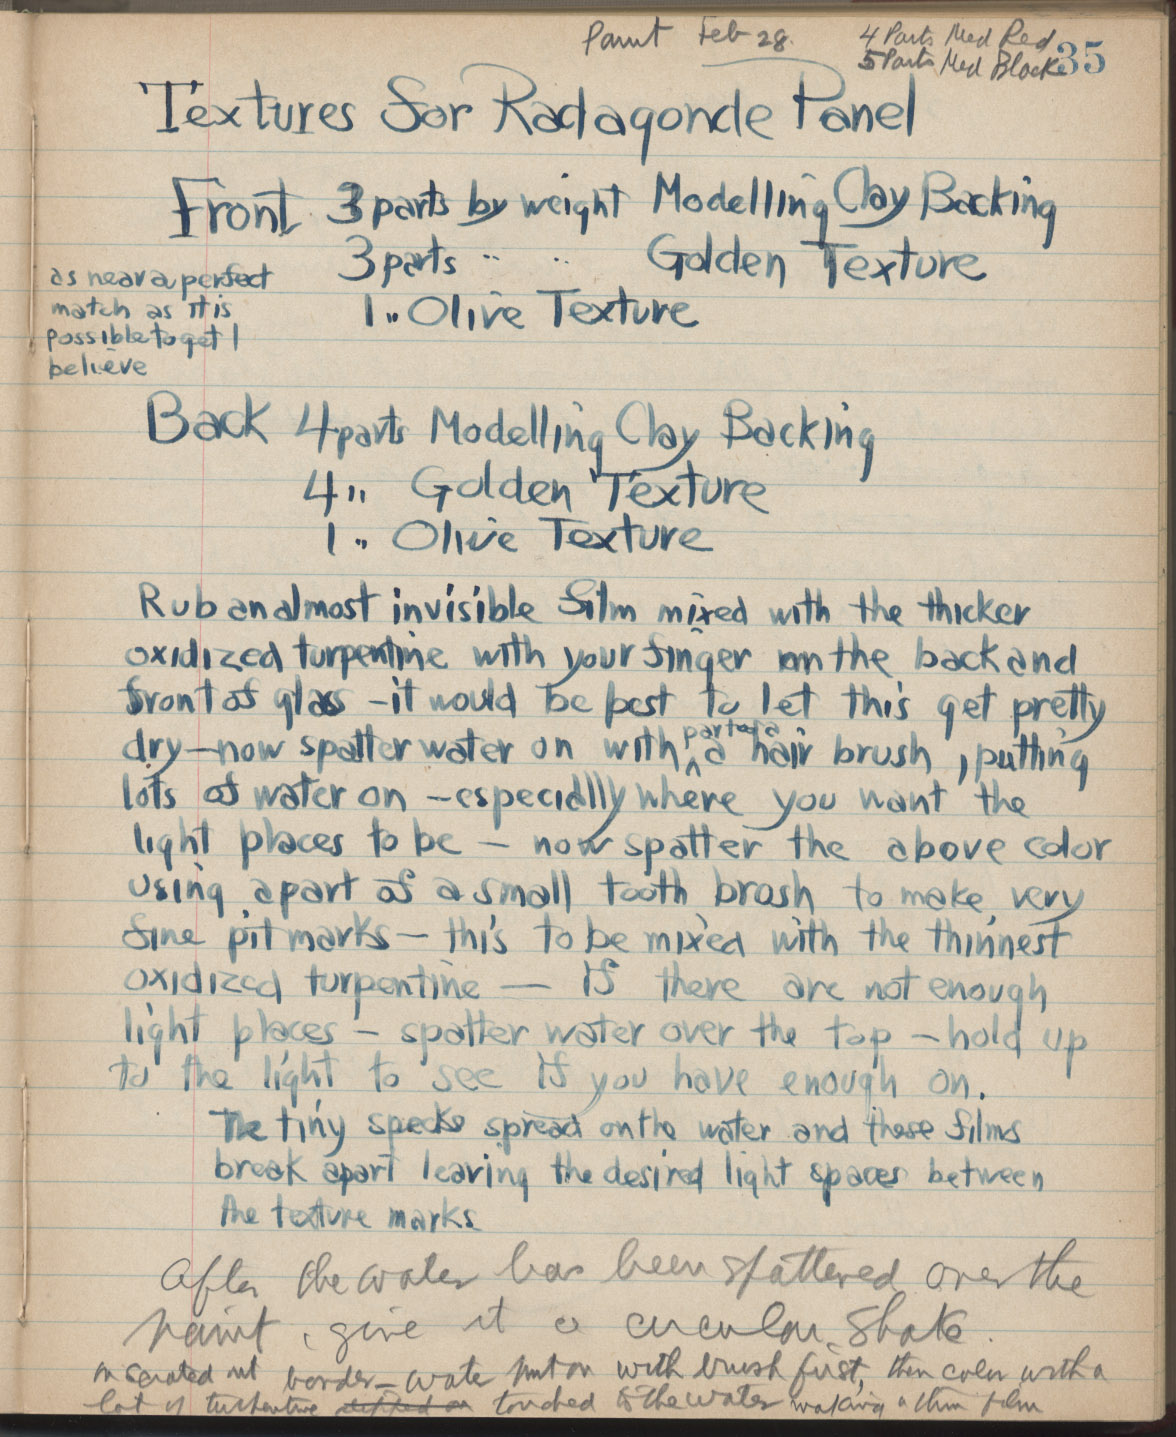 Paint Feb 28. 4 Parts Med Red
5 Parts Med Black 35
Textures for Radagonde Panel
Front 3 parts by weight Modelling Clay Backing
3 parts " " Golden Texture
1 " Olive Texture
as near a perfect
match as it is
possible to get I
believe
Back 4 parts Modelling Clay Backing
4 " Golden Texture
1 " Olive Texture
Rub an almost invisible film mixed with the thicker
oxidized turpentine with your finger on the back and
front of glass – it would be best to let this get pretty
dry – now spatter water on with part of a hair brush, putting
lots of water on – especially where you want the
light places to be – now spatter the above color
using a part of a small tooth brush to make very
fine pit marks – this to be mixed with the thinnest
oxidized turpentine — If there are not enough
light places – spatter water over the top – hold up
to the light to see if you have enough on.
The tiny specks spread on the water and these films
break apart leaving the desired light spaces between
the texture marks
After the water has been spattered over the
paint, give it a circular shake.
border – water put on with brush first, then color with a
lot of turpentine touched to the water making a thin film